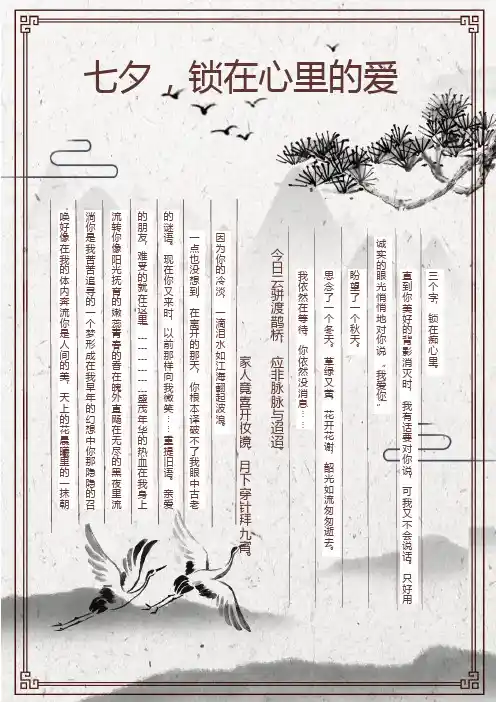 七夕，锁在心里的爱
三个字，锁在痴心里，
直到你美好的背影消灭时，我有话要对你说，可我又不会说话，只好用
诚实的眼光悄悄地对你说：“我爱你”
盼望了一个秋天。
思念了一个冬天。草绿又黄，花开花谢，韶光如流匆匆逝去。
我依然在等待，你依然没消息……
今日云骈渡鹊桥，应非脉脉与迢迢
家人竟喜开妆镜，月下穿针拜九宵。
因为你的冷淡，一滴泪水如江海翻起波浪。
一点也没想到，在离开的那天，你根本译破不了我眼中古老
的谜语。现在你又来时，以前那样向我微笑……重提旧语，亲爱
的朋友，难受的就在这里……………盛茂年华的热血在我身上
流转你像阳光抚育的嫩蕊青春的香在魄外直飏在无尽的黑夜里流
淌你是我苦苦追寻的一个梦形成在我早年的幻想中你那隐隐的召
唤好像在我的体内奔流你是人间的美，天上的花晨曦里的一抹朝